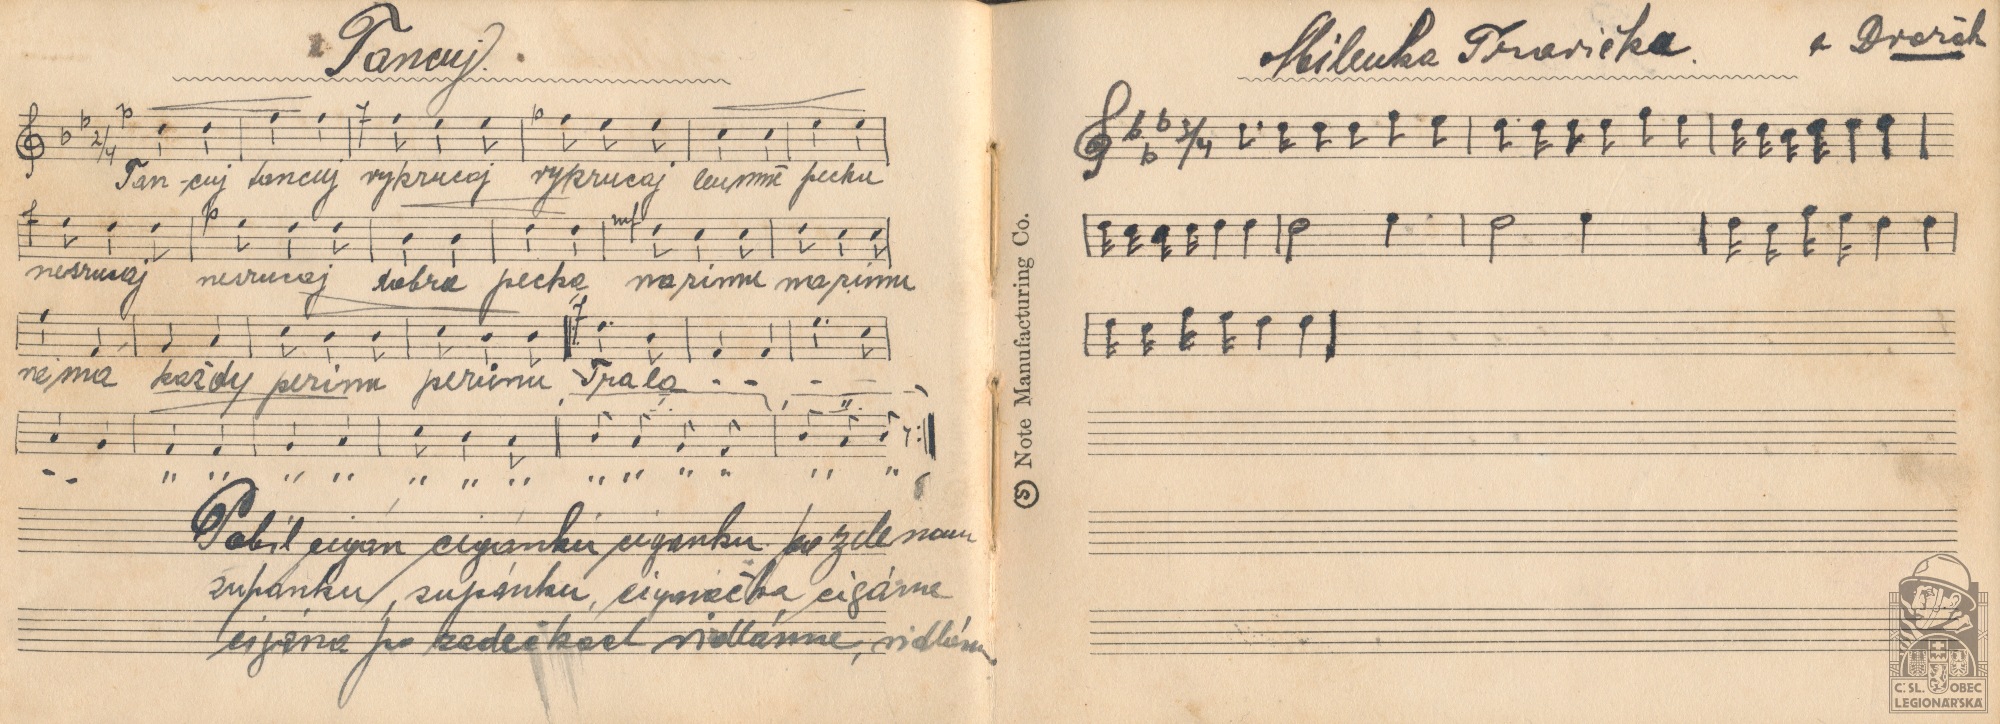 Tancuj.
2/4
p f p
Tan-cuj tancuj vykrucaj vykrucaj len mně pecku
f p mf
nesrucaj nesrucaj dobra pecka na zimu na zimu
f
nejma každy perinu perinu Trala - - - -
- - " " " " " " " " " " " " " "
Pobil cigán cigánku ciganku po zelenom
zupanku, zupánku, cigánečka cigána
cigána po zadečkách vidláma, vidláma
Milenka Travička.
a Dvořák
3/4
S Note Manufacturing Co.
Č.SL. OBEC
LEGIONÁŘSKÁ